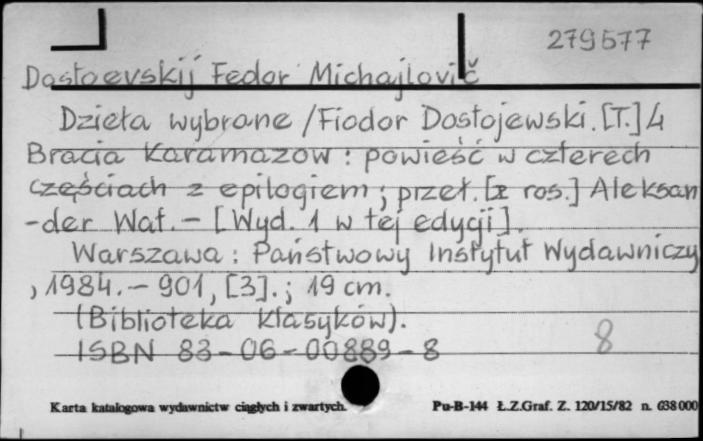 279577
Dostoevskij Fedor Michajlovič
Dzieła wybrane / Fiodor Dostojewski. [T.] 4
Bracia Karamazow : powieść w czterech
częściach z epilogiem ; przeł. [z ros.] Aleksan
-der Wat. - [Wyd. 1 w tej edycji].
Warszawa : Państwowy Instytut Wydawniczy
, 1984. - 901, [3]. ; 19 cm.
(Biblioteka Klasyków).
ISBN 83-06-00889-8
8
Karta katalogowa wydawnictw ciągłych i zwartych. Pu-B-144 Ł.Z.Graf. Z. 120/15/82 n. 638000